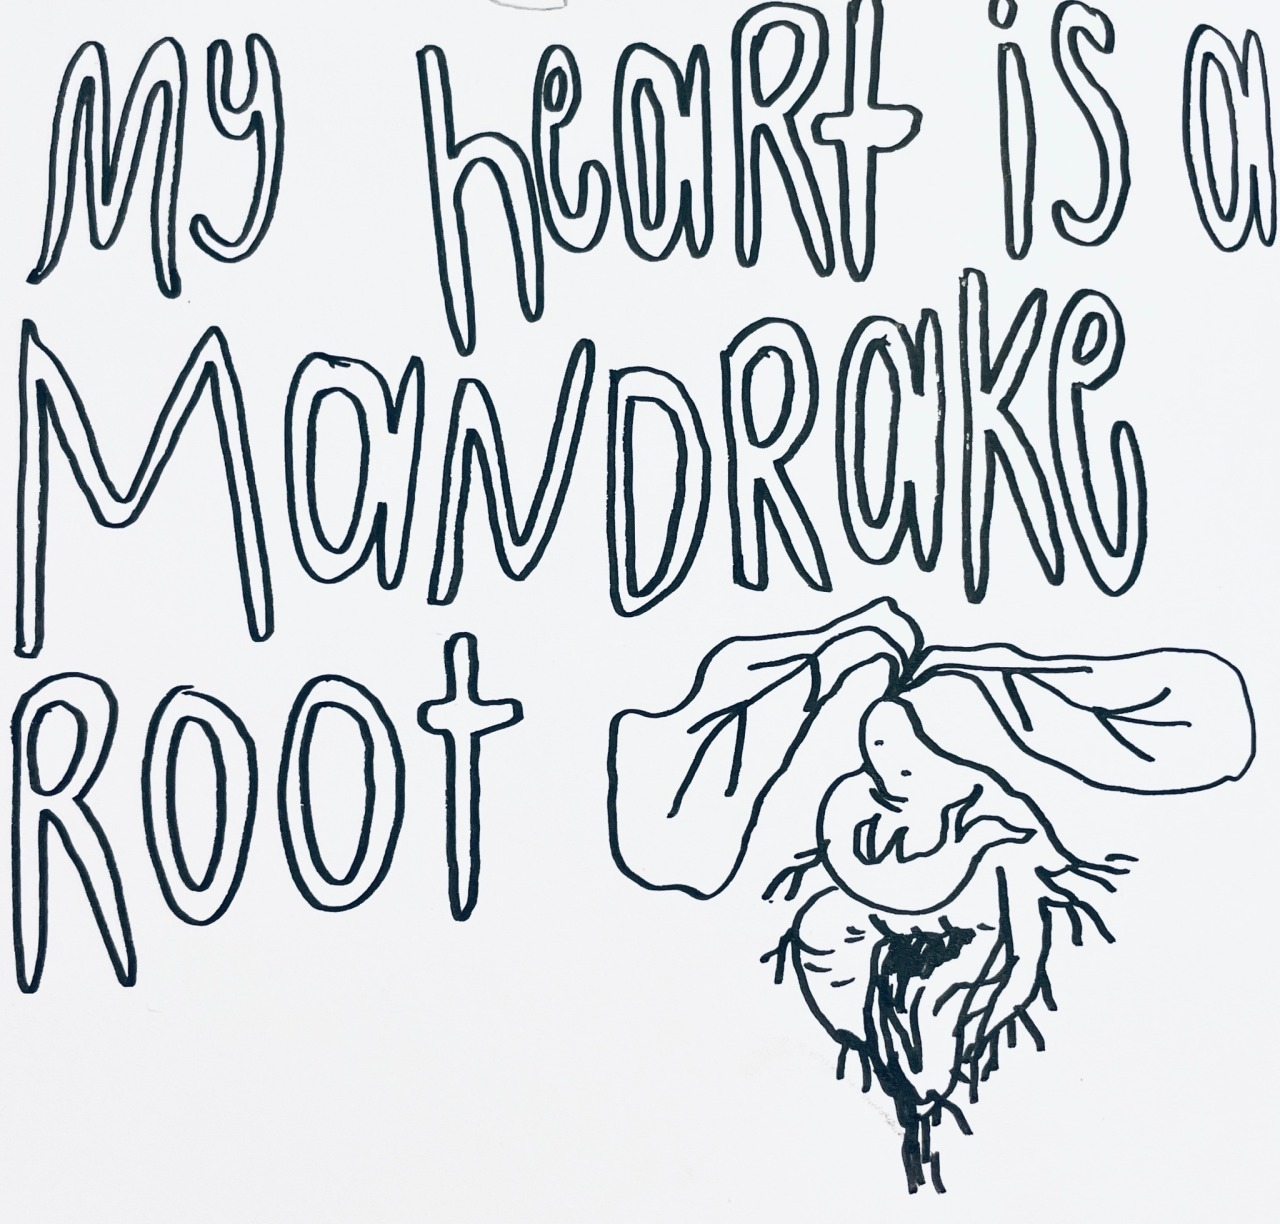 My heaRt is a
MaNDRake
ROOt